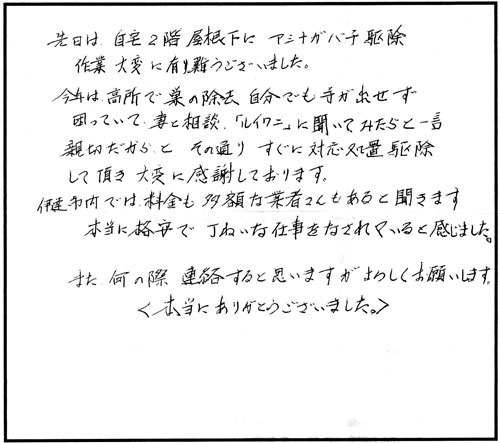 先日は、自宅2階屋根下に アシナガバチ駆除
作業 大変に有り難うございました。
今年は、高所で巣の除去 自分でも手が出せず
困っていて、妻と相談、「ルイワニ」に聞いてみたらと一言
親切だから、と その通り すぐに対応処置 駆除
して頂き 大変に感謝しております。
伊達市内では、料金も 多額な業者さんもあると聞きます
本当に格安で 丁ねいな仕事をなされていると感じました。
また、何の際 連絡すると思いますが よろしくお願いします。
＜本当にありがとうございました。＞